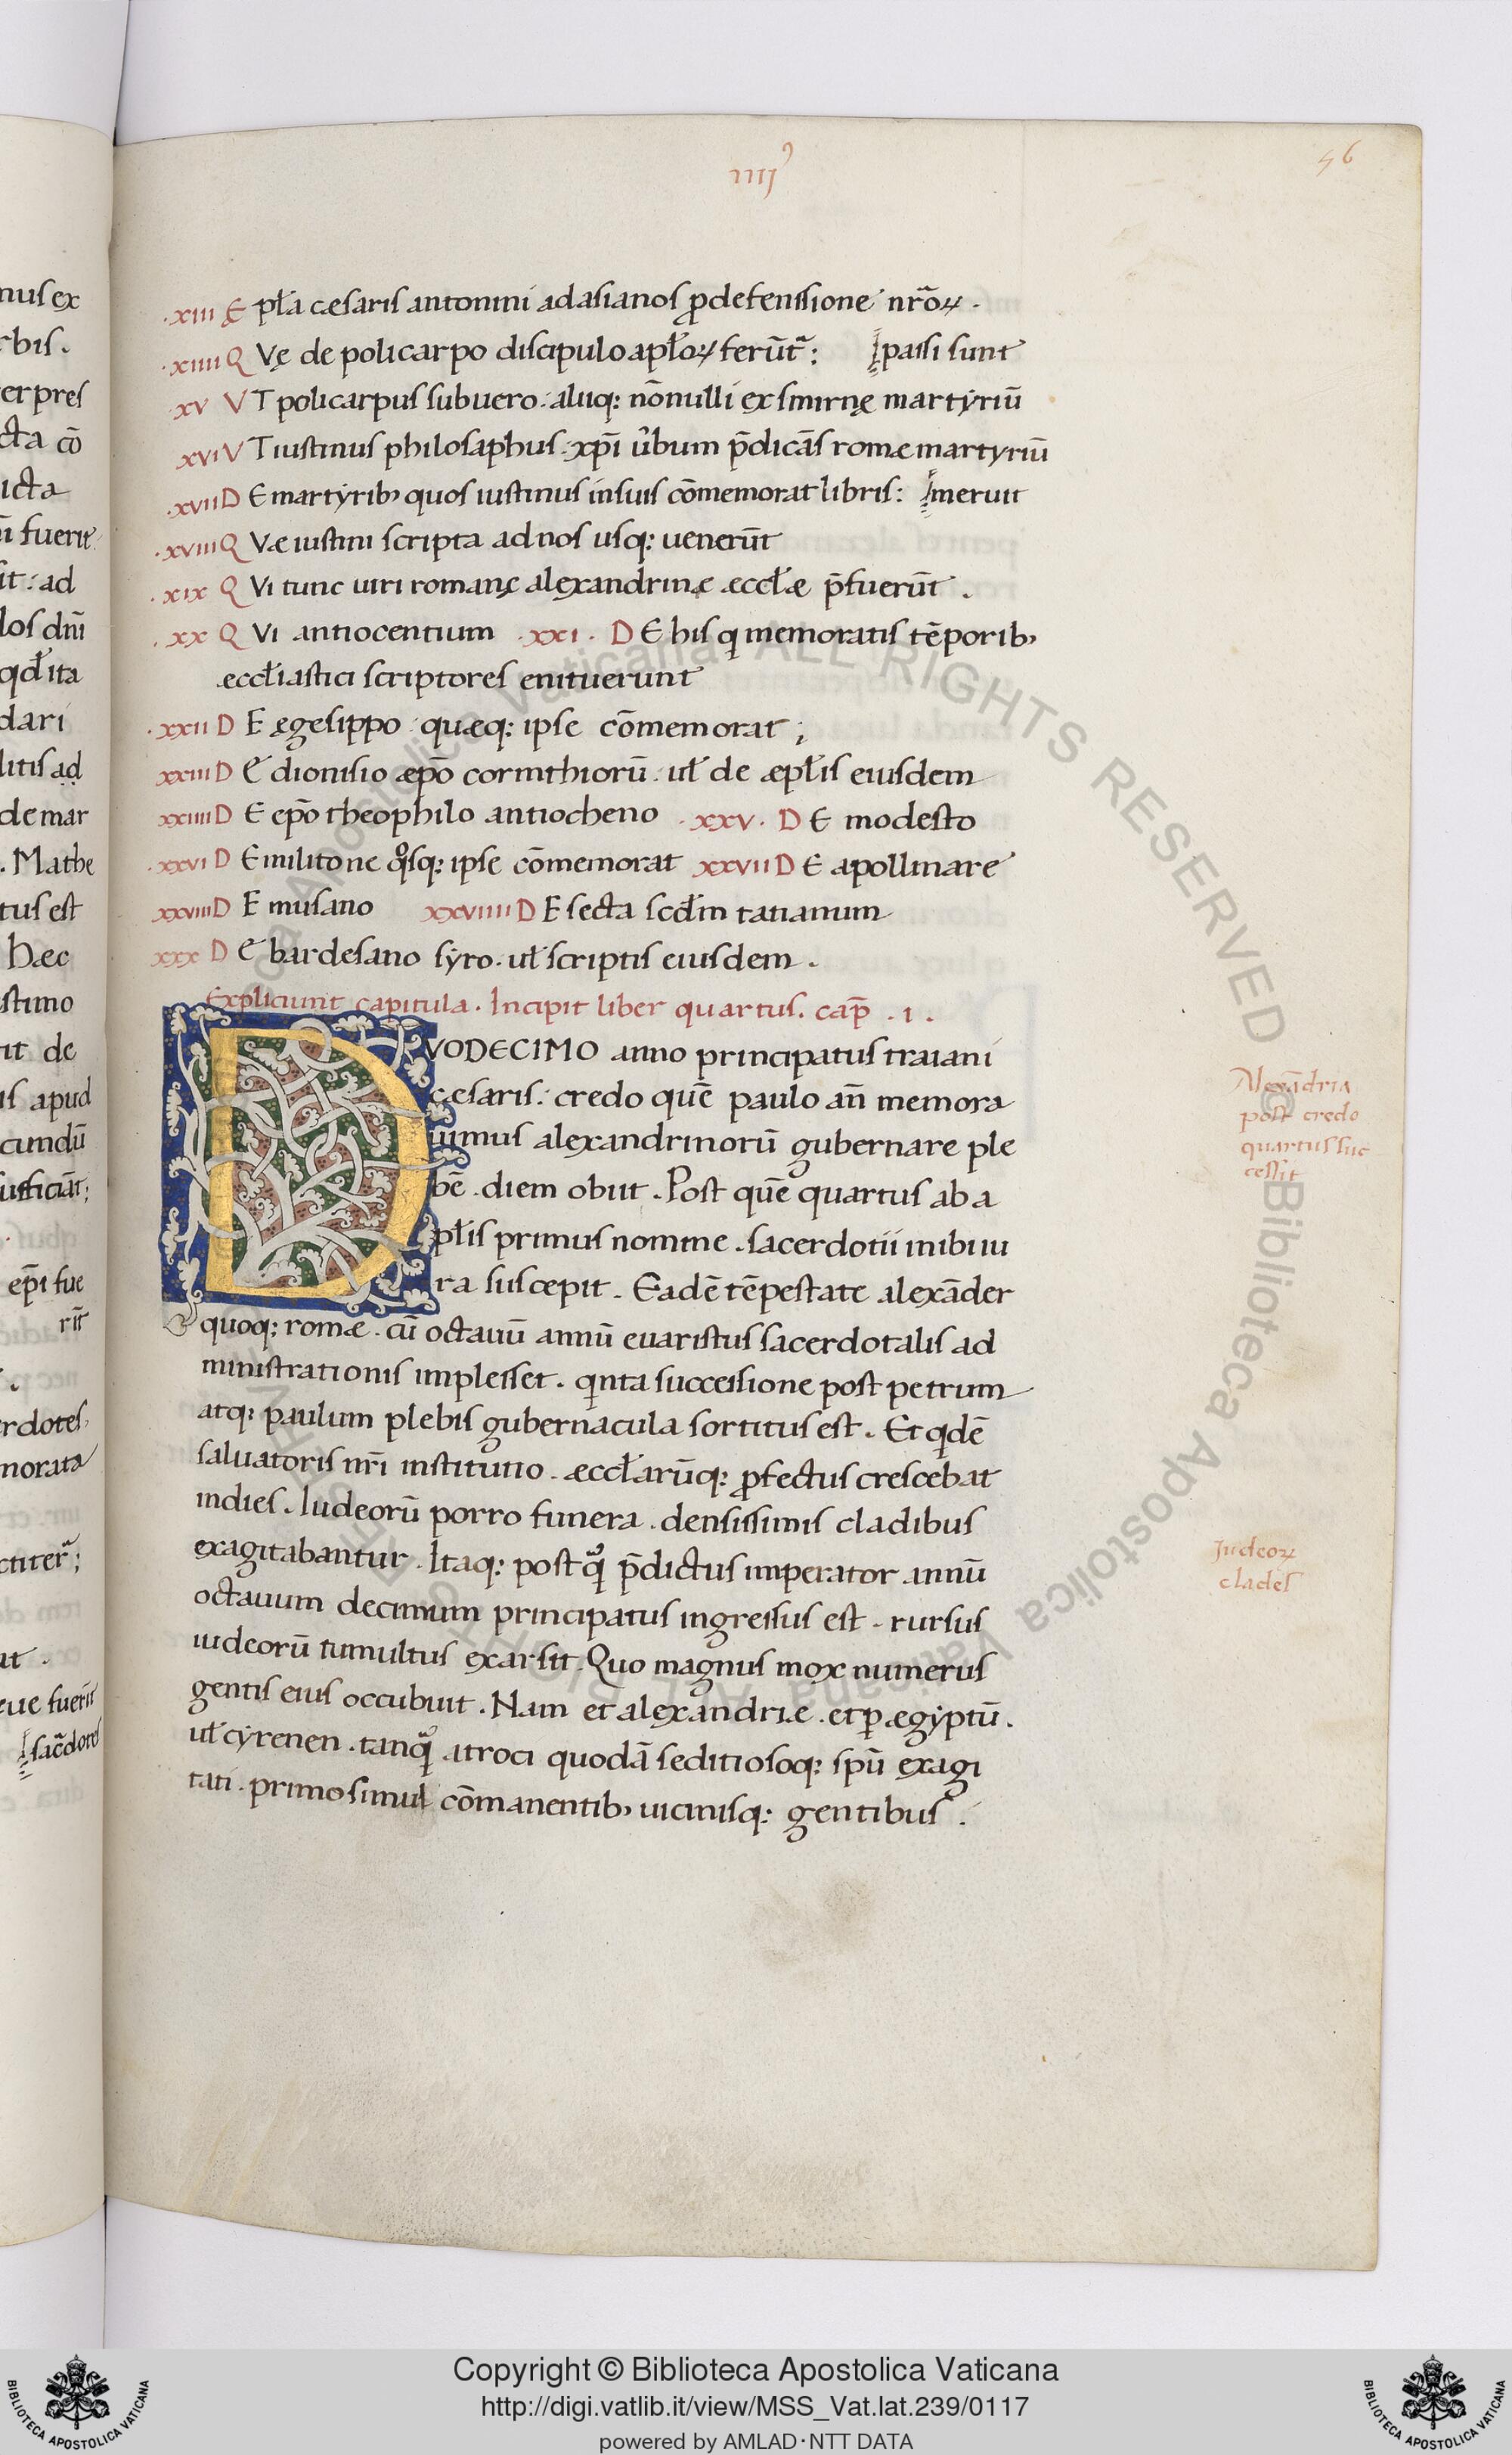 IIIIꝰ
56
.xiii E pła cesaris antonini ad asianos ꝓ defensione nr̃oꝝ.
.xiiii Q Vę de policarpo discipulo apłoꝝ ferūt᷑: passi sunt
.xv V T policarpus sub uero. aliiq; nōnulli ex smirnę martyriū
xvi V T iustinus philosaphus. xp̄i ủbum p̄dicās romæ martyriū
.xvii D E martyrib; quos iustinus in suis cōmemorat libris: meruit
.xviii Q Væ iustini scripta ad nos usq; uenerūt
.xix Q Vi tunc uiri romanę alexandrinæ æccłæ p̄fuerūt.
.xx Q Vi antiocentium .xxi. D E his q memoratis tēporib;
æccłiastici scriptores enituerunt
.xxii D E ægesippo quæq; ipse cōmemorat;
xxiii D E dionisio æpō corinthiorū. uł de æpłis eiusdem
xxiiii D E epō theophilo antiocheno .xxv. D E modesto
.xxvi D E militone qͦsq; ipse cōmemorat xxvii D E apollinare
xxviii D E musano xxviiii D E secta scd̄m tatianum
xxx D E bardesano syro. uł scriptis eiusdem.
Expliciunt capitula. Incipit liber quartus. cap̄ .i.
DVODECIMO anno principatus traiani
cæsaris. credo quē paulo añ memora
uimus alexandrinorū gubernare ple
bē. diem obiit. Post quē quartus ab a
płis primus nomine. sacerdotii inibi iu
ra suscepit. Eadē tēpestate alexāder
quoq; romæ. cū octauū annū euaristus sacerdotalis ad
ministrationis implesset. qinta successione post petrum
atq; paulum plebis gubernacula sortitus est. Et qidē
saluatoris nr̃i institutio. æccłarūq; ꝓfectus crescebat
indies. Iudeorū porro funera. densissimis cladibus
exagitabantur. Itaq; postqͣ p̄dictus imperator annū
octauum decimum principatus ingressus est. rursus
iudeorū tumultus exarsit. Quo magnus mox numerus
gentis eius occubuit. Nam et alexandriæ. et ꝑ ægyptū.
uł cyrenen. tanqͣ atroci quodā seditiosoq; spū exagi
tati. primo simul cōmanentib; uicinisq; gentibus.
Alexādria
post credo
quartus suc
cessit
Iudeoꝝ
clades
Copyright © Biblioteca Apostolica Vaticana
http://digi.vatlib.it/view/MSS_Vat.lat.239/0117
powered by AMLAD·NTT DATA